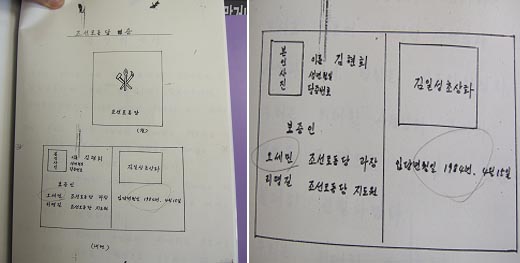 조선로동당 당증
조선로동당
(앞)
본인사진
이름 김현희
생년월일
당증번호
김일성초상화
보증인
오세민 조선로동당 과장
리명길 조선로동당 지도원
입당년월일 1984년. 4월 15일
본인사진
이름 김현희
생년월일
당증번호
김일성초상화
보증인
오세민 조선로동당 과장
리명길 조선로동당 지도원
입당년월일 1984년. 4월 15일